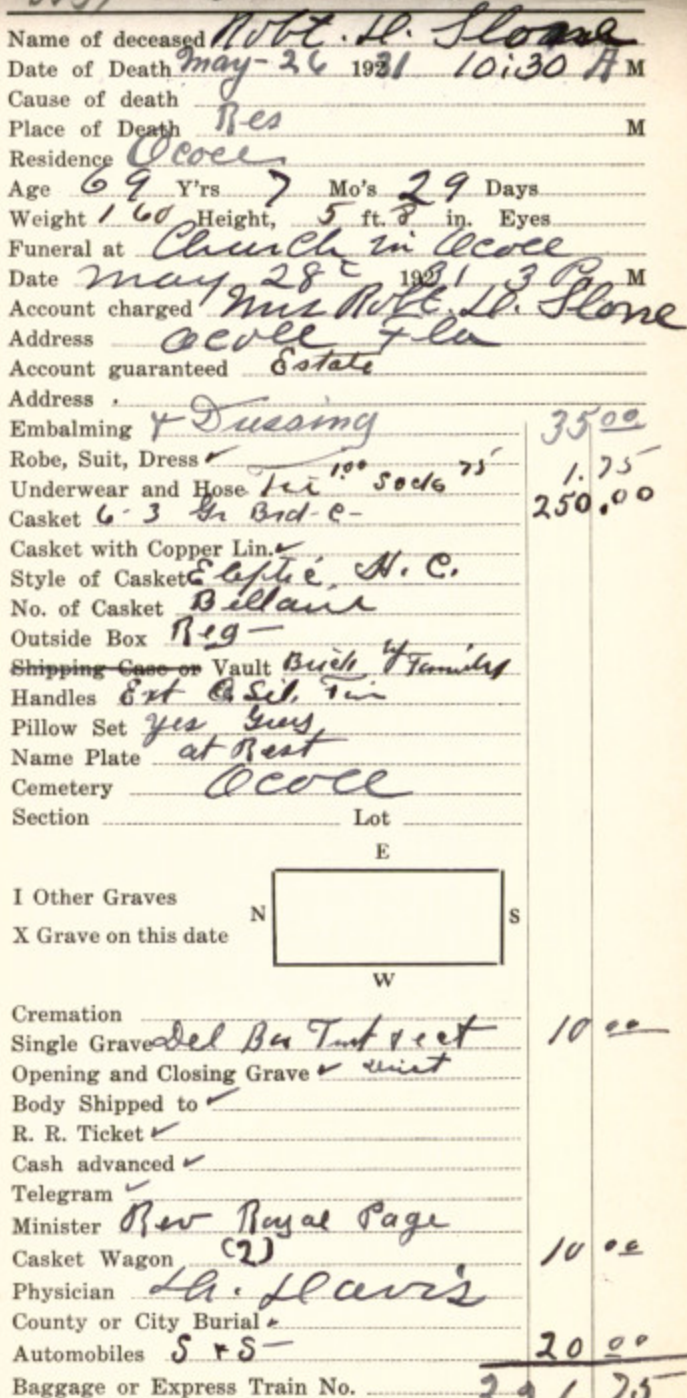 Name of deceased Robt. D. Sloane
Date of Death May-26 1931 10:30 A M
Cause of death
Place of Death Res M
Residence Ocoee
Age 69 Y'rs 7 Mo's 29 Days
Weight 160 Height, 5 ft. 8 in. Eyes
Funeral at Church in Ocoee
Date May 28 1931 3 P M
Account charged Mrs Robt. D. Slone
Address Ocoee Fla
Account guaranteed Estate
Address .
Embalming & Dressing 35 00
Robe, Suit, Dress ✓
Underwear and Hose Tie 1.00 Socks 75 1.75
Casket 6-3 Gr Brd-C- 250.00
Casket with Copper Lin. ✓
Style of Casket Eleptic H. C.
No. of Casket
Outside Box Reg-
Shipping Case or Vault Brick by Family
Handles Ext Sil.
Pillow Set yes
Name Plate at Rest
Cemetery Ocoee
Section Lot
E
I Other Graves
N S
X Grave on this date
W
Cremation
Single Grave Del Box Tent 10 00
Opening and Closing Grave ✓
Body Shipped to ✓
R. R. Ticket ✓
Cash advanced ✓
Telegram ✓
Minister Rev Royal Page
Casket Wagon (2) 10 00
Physician Davis
County or City Burial
Automobiles S & S- 20 00
Baggage or Express Train No.